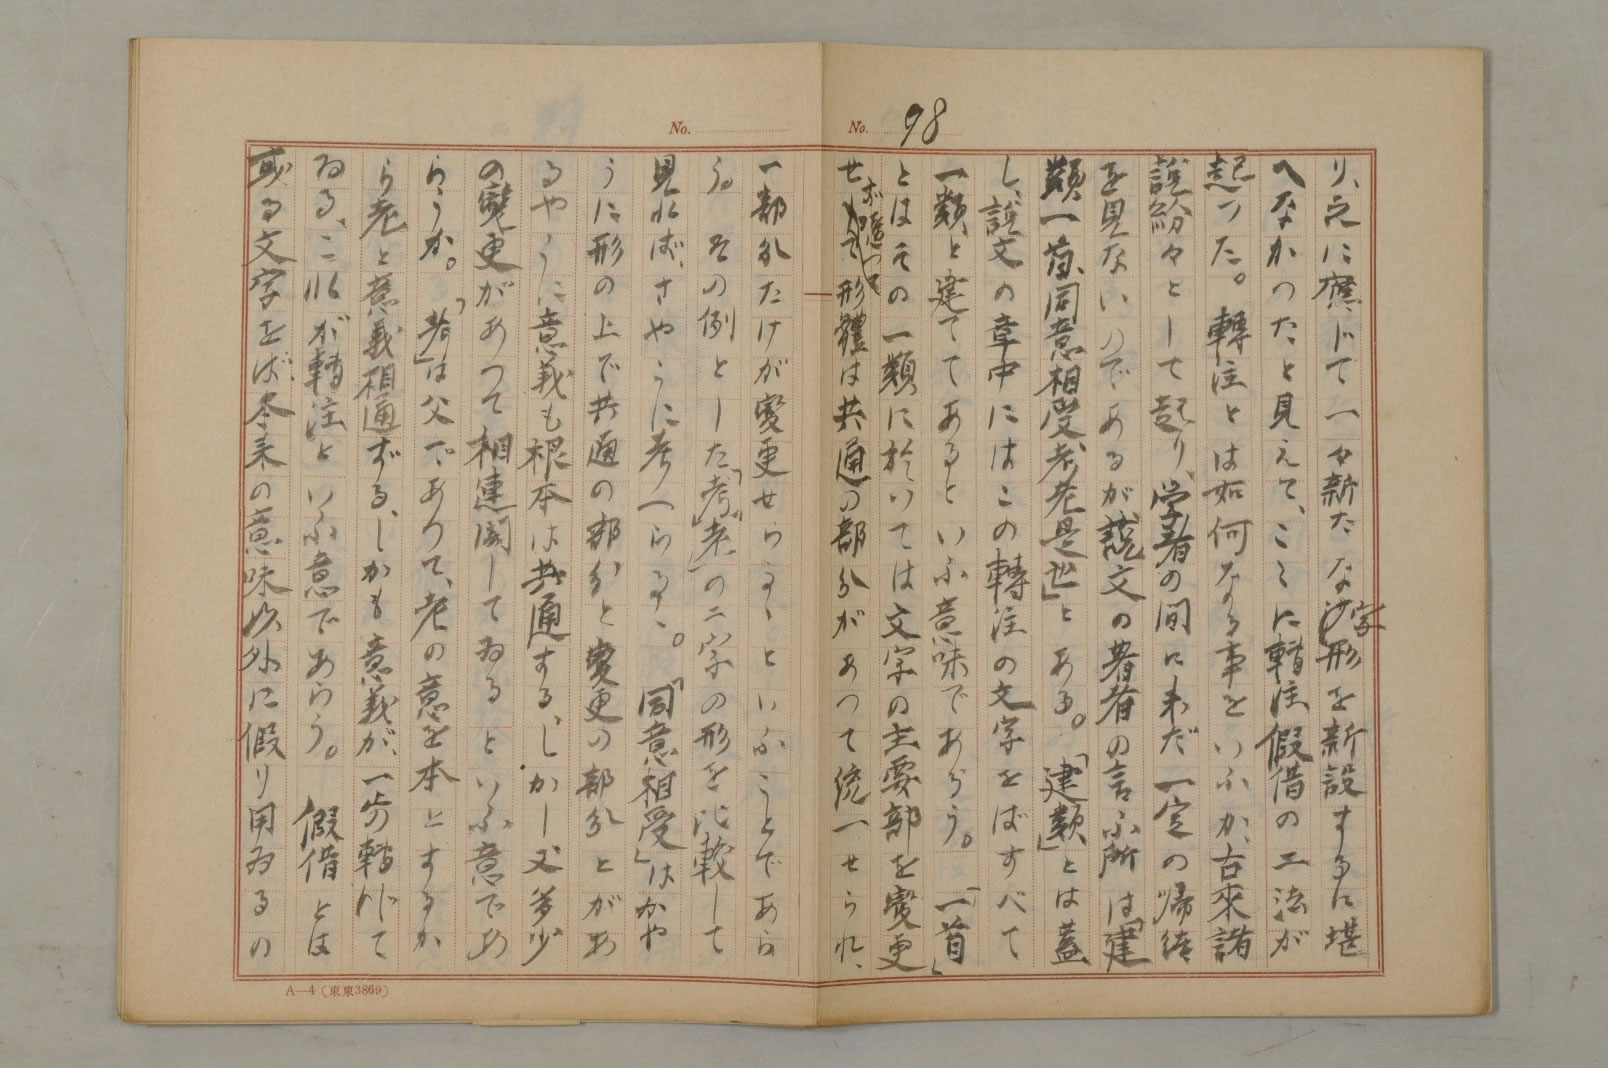 No. 98
り、之に應じて一々新たな字形を新設するに堪
へなかつたと見えて、こゝに轉注假借の二法が
起つた。轉注とは如何なる事をいふか、古來諸
說紛々として起り、学者の間に未だ一定の帰結
を見ないのであるが說文の著者の言ふ所は「建
類一首、同意相受、考老是也」とある。「建類」とは蓋
し、說文の章中にはこの轉注の文字をばすべて
一類と建てゝあるといふ意味であらう。「一首」
とはその一類に於いては文字の主要部を變更
せず隨つて形體は共通の部分があつて統一せられ、
No.
一部分だけが變更せらるゝといふことであら
う。その例とした「考」「老」の二字の形を比較して
見れば、さやうに考へらるゝ。「同意相受」はかや
うに形の上で共通の部分と變更の部分とがあ
るやうに意義も根本は共通する、しかし又多少
の變更があつて相連関してゐるといふ意であ
らうか。「考」は父であつて、老の意を本とするか
ら老と意義相通ずる、しかも意義が、一歩轉じて
ゐる、これが轉注といふ意であらう。假借とは
或る文字をば本来の意味以外に假り用ゐるの
A—4(東東3869)